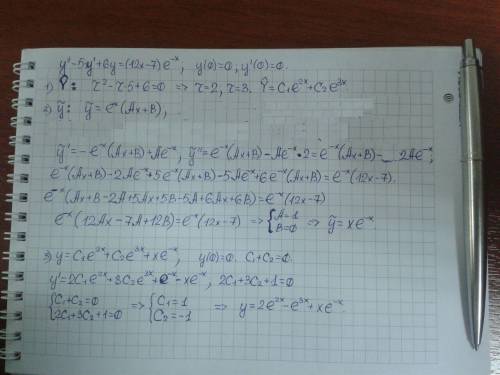 y''-5y'+6y=(12x-7)e^{-x}; y(0)=0, y'(0)=0.
1) Ȳ: r²-r·5+6=0 => r=2, r=3. Ȳ=C₁e^{2x}+C₂e^{3x}
2) ỹ: ỹ=e^{-x}(Ax+B),
ỹ'=-e^{-x}(Ax+B)+Ae^{-x}, ỹ''=e^{-x}(Ax+B)-Ae^{-x}·2=e^{-x}(Ax+B)-2Ae^{-x};
e^{-x}(Ax+B)-2Ae^{-x}+5e^{-x}(Ax+B)-5Ae^{-x}+6e^{-x}(Ax+B)=e^{-x}(12x-7).
e^{-x}(Ax+B-2A+5Ax+5B-5A+6Ax+6B)=e^{-x}(12x-7)
e^{-x}(12Ax-7A+12B)=e^{-x}(12x-7) => {A=1 B=0 => ỹ=xe^{-x}
3) y=C₁e^{2x}+C₂e^{3x}+xe^{-x}, y(0)=0. C₁+C₂=0.
y'=2C₁e^{2x}+3C₂e^{3x}+e^{-x}-xe^{-x}, 2C₁+3C₂+1=0
{C₁+C₂=0 2C₁+3C₂+1=0 => {C₁=1 C₂=-1 => y=2e^{2x}-e^{3x}+xe^{-x}.